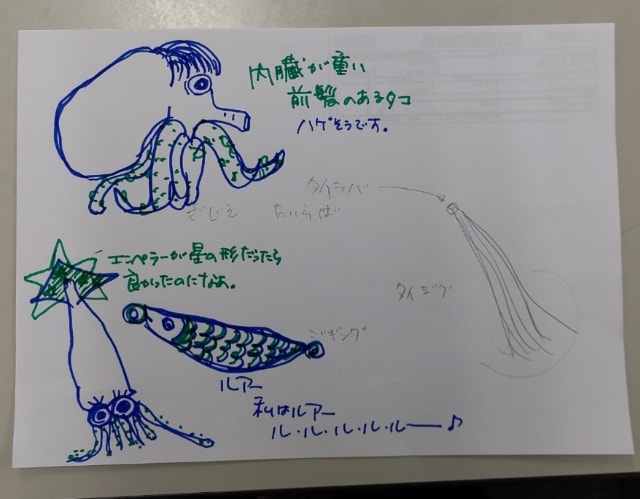 内臓が重い
前髪のあるタコ
ハゲそうです。
タイラバ
さしえ たいらば
エンペラーが星の形だったら
良かったのになぁ。
タイジグ
ジギング
ルアー
私はルアー
ル・ル・ル・ル・ルー──♪